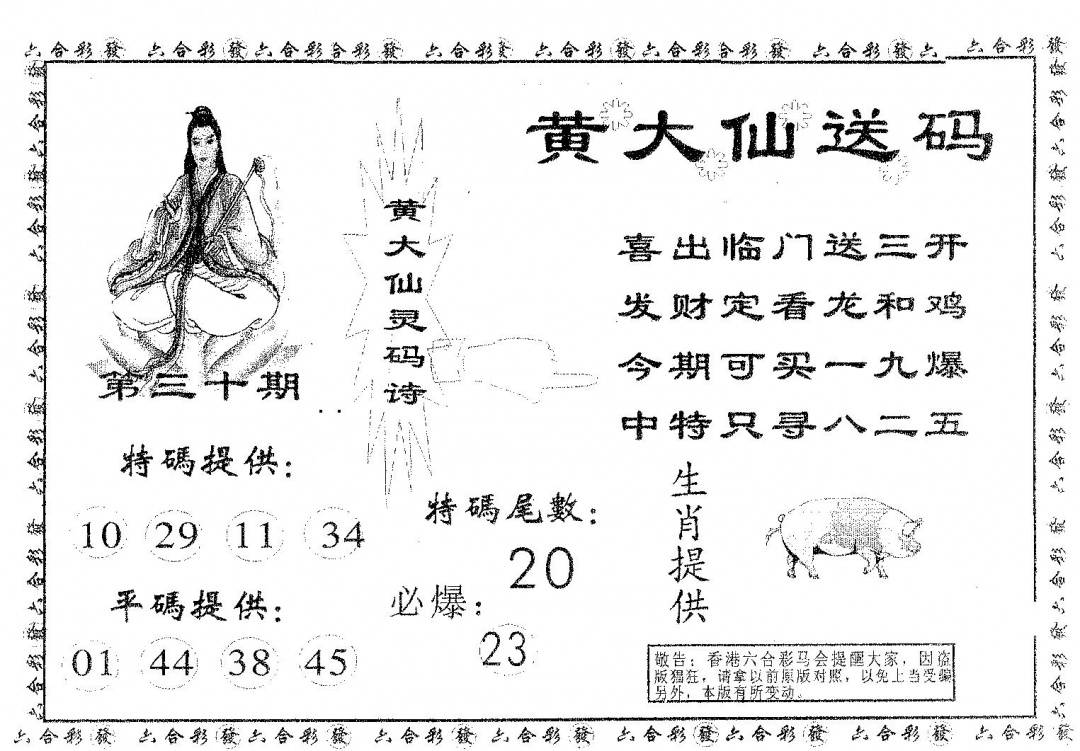 六合彩發 六合彩發六合彩發合彩發 六合彩發 六合彩發六合彩發 六合彩發 六合彩發六 六合彩發
黄大仙送码
黄大仙灵码诗
喜出临门送三开
发财定看龙和鸡
今期可买一九爆
中特只寻八二五
第三十期
特碼提供：
10 29 11 34
平碼提供：
01 44 38 45
特碼尾數：
20
必爆：
23
生肖提供
敬告：香港六合彩马会提醒大家，因盗
版猖狂，请拿以前原版对照，以免上当受骗
另外，本版有所变动。
六合彩發 六合彩發六合彩發 六合彩發 六合彩發 六合彩發六合彩發 六合彩發 六合彩發